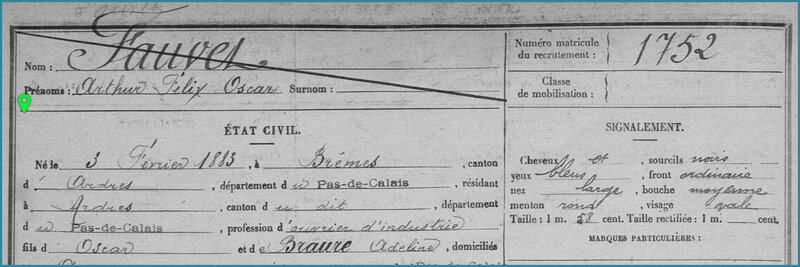 Nom : Fauvel
Prénoms : Arthur Félix Oscar Surnom :
Numéro matricule du recrutement : 1752
Classe de mobilisation :
ÉTAT CIVIL.
Né le 3 Février 1883, à Brêmes, canton
d'Ardres, département du Pas-de-Calais, résidant
à Ardres, canton du dit, département
du Pas-de-Calais, profession d'ouvrier d'industrie
fils d'Oscar et de Braure Adeline, domiciliés
SIGNALEMENT.
Cheveux et sourcils noirs
yeux bleus, front ordinaire
nez large, bouche moyenne
menton rond, visage ovale
Taille : 1 m. 58 cent. Taille rectifiée : 1 m. cent.
MARQUES PARTICULIÈRES :